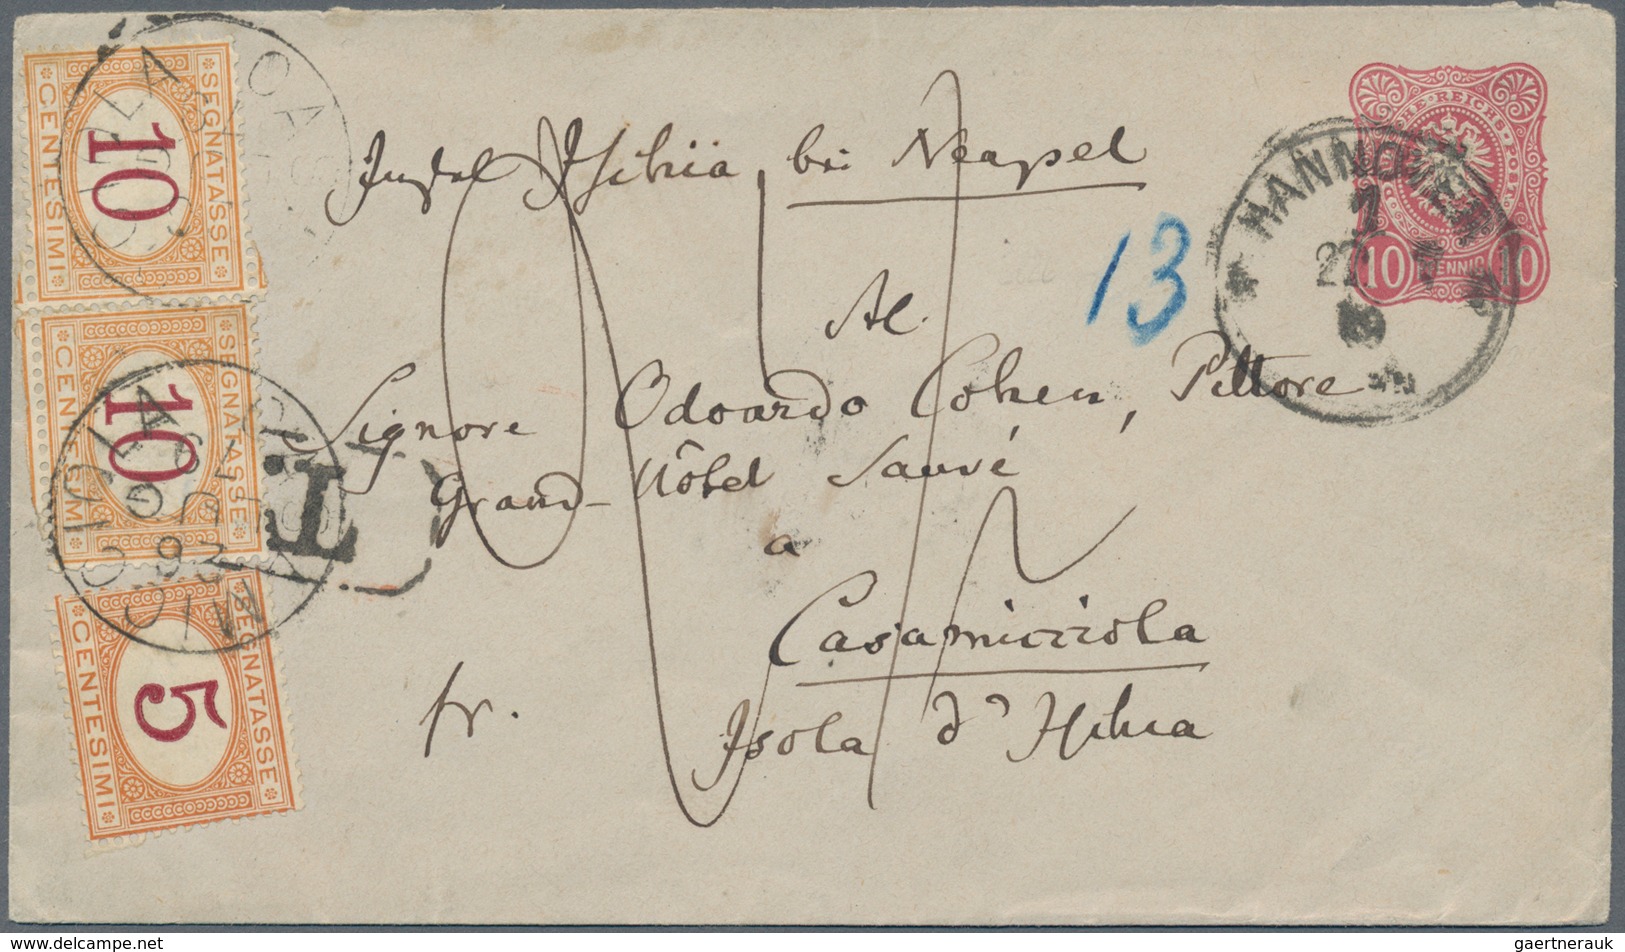 Insel Ischia bei Neapel
13
Al.
Signore Odoardo Cohen, Pittore
Grand-Hôtel Sauvé
a
Casamicciola
fr.
Isola d'Ischia
T
HANNO
1
10 PFENNIG 10
SEGNATASSE
10
CENTESIMI
SEGNATASSE
10
CENTESIMI
SEGNATASSE
5
CENTESIMI
www.delcampe.net
gaertnerauk